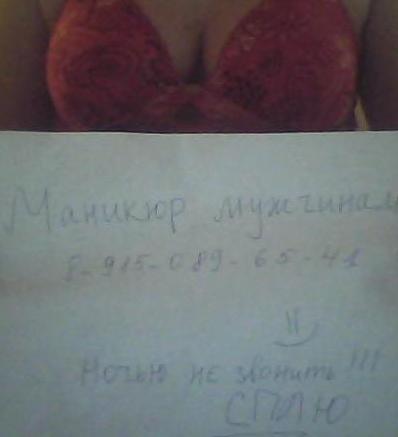 Маникюр мужчинам
8-915-089-65-41
Ночью не звонить!!!
СПЛЮ